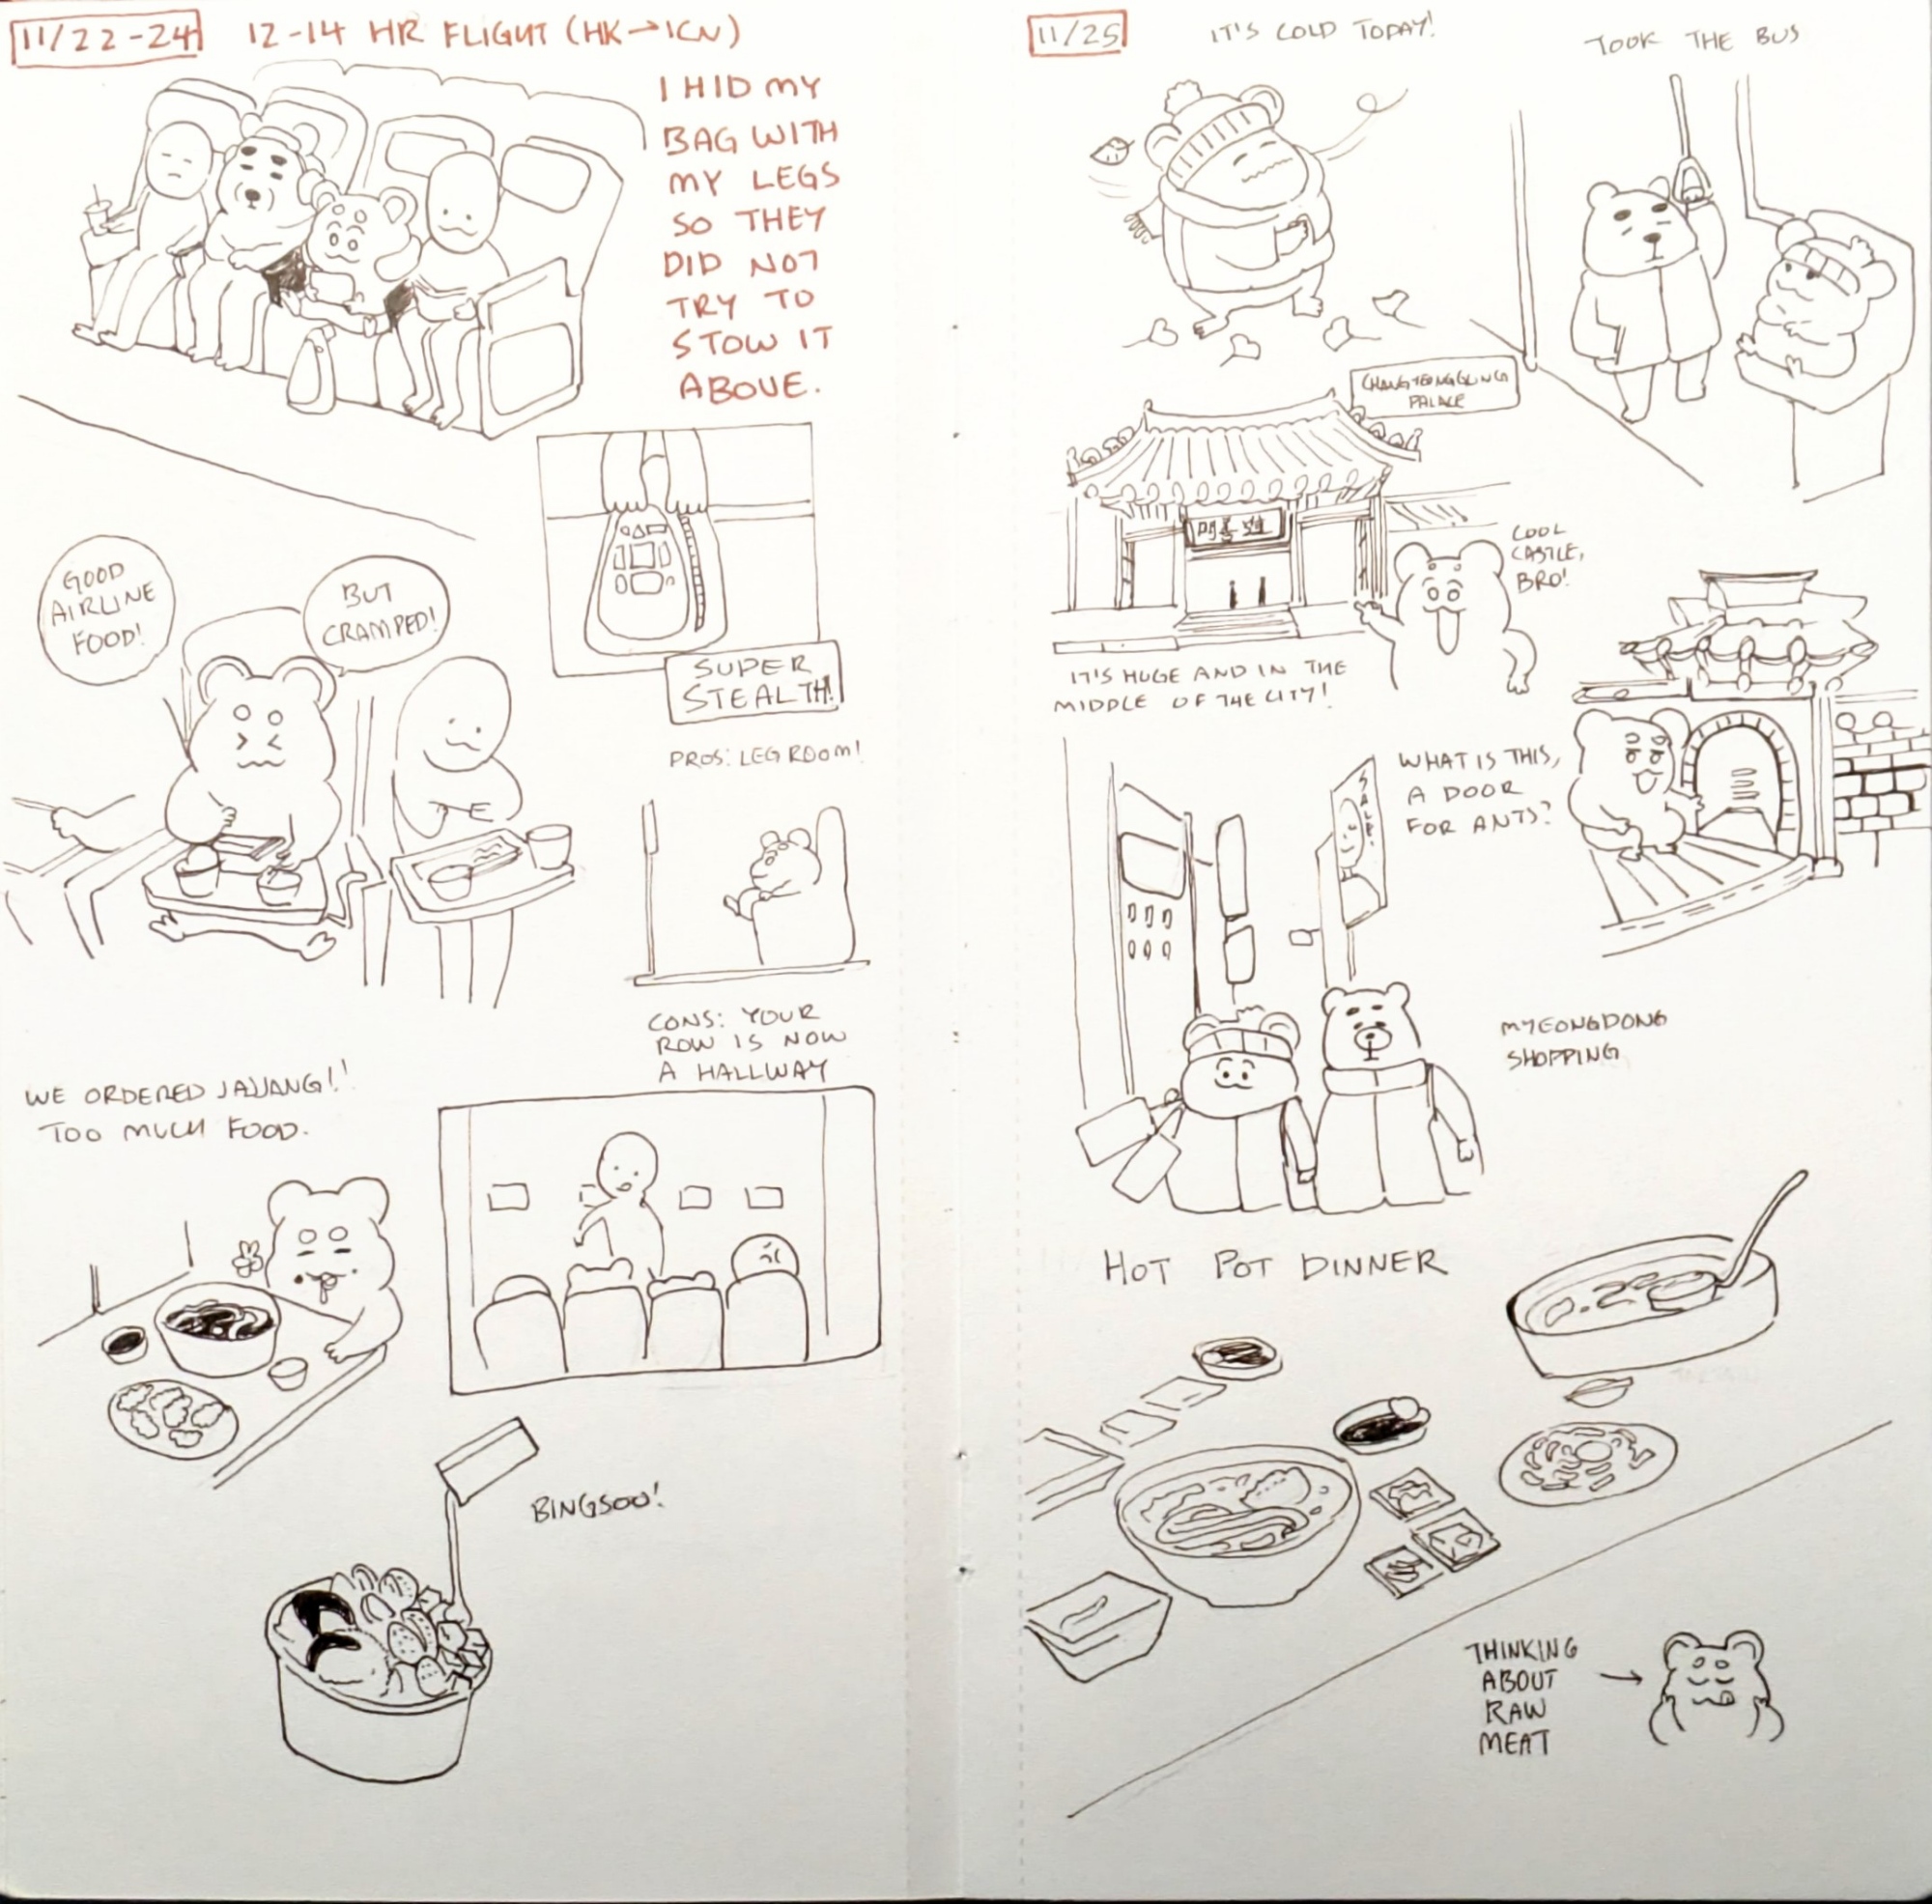 11/22-24
12-14 HR FLIGHT (HK→ICN)
I HID MY
BAG WITH
MY LEGS
SO THEY
DID NOT
TRY TO
STOW IT
ABOVE.
SUPER
STEALTH!
GOOD
AIRLINE
FOOD!
BUT
CRAMPED!
PROS: LEG ROOM!
CONS: YOUR
ROW IS NOW
A HALLWAY
WE ORDERED JAJJANG!!
TOO MUCH FOOD.
BINGSOO!
11/25
IT'S COLD TODAY!
TOOK THE BUS
CHANGYEONGGUNG
PALACE
COOL
CASTLE,
BRO!
IT'S HUGE AND IN THE
MIDDLE OF THE CITY!
WHAT IS THIS,
A DOOR
FOR ANTS?
SALE!
MYEONGDONG
SHOPPING
HOT POT DINNER
THINKING
ABOUT
RAW
MEAT